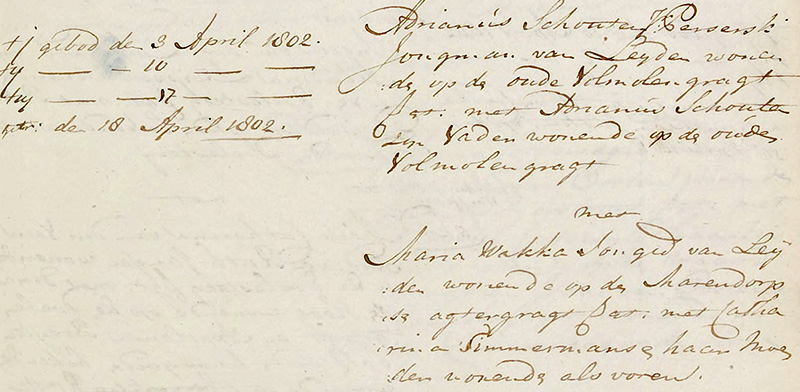 1 gebod den 3 April 1802.
— — 10 — —
— — 17 — —
getr: den 18 April 1802.
Adrianus Schouten
Jongman van Leyden wonen
:de op de oude Volmolengragt
Get: met Adrianus Schoute
zijn Vader wonende op de oude
Volmolengragt
met
Maria Wakka Jong d van Ley
:den wonende op de Marendorp
:se agtergragt Get: met Catha
:rina Timmermans haar Moe
:der wonende als voren.